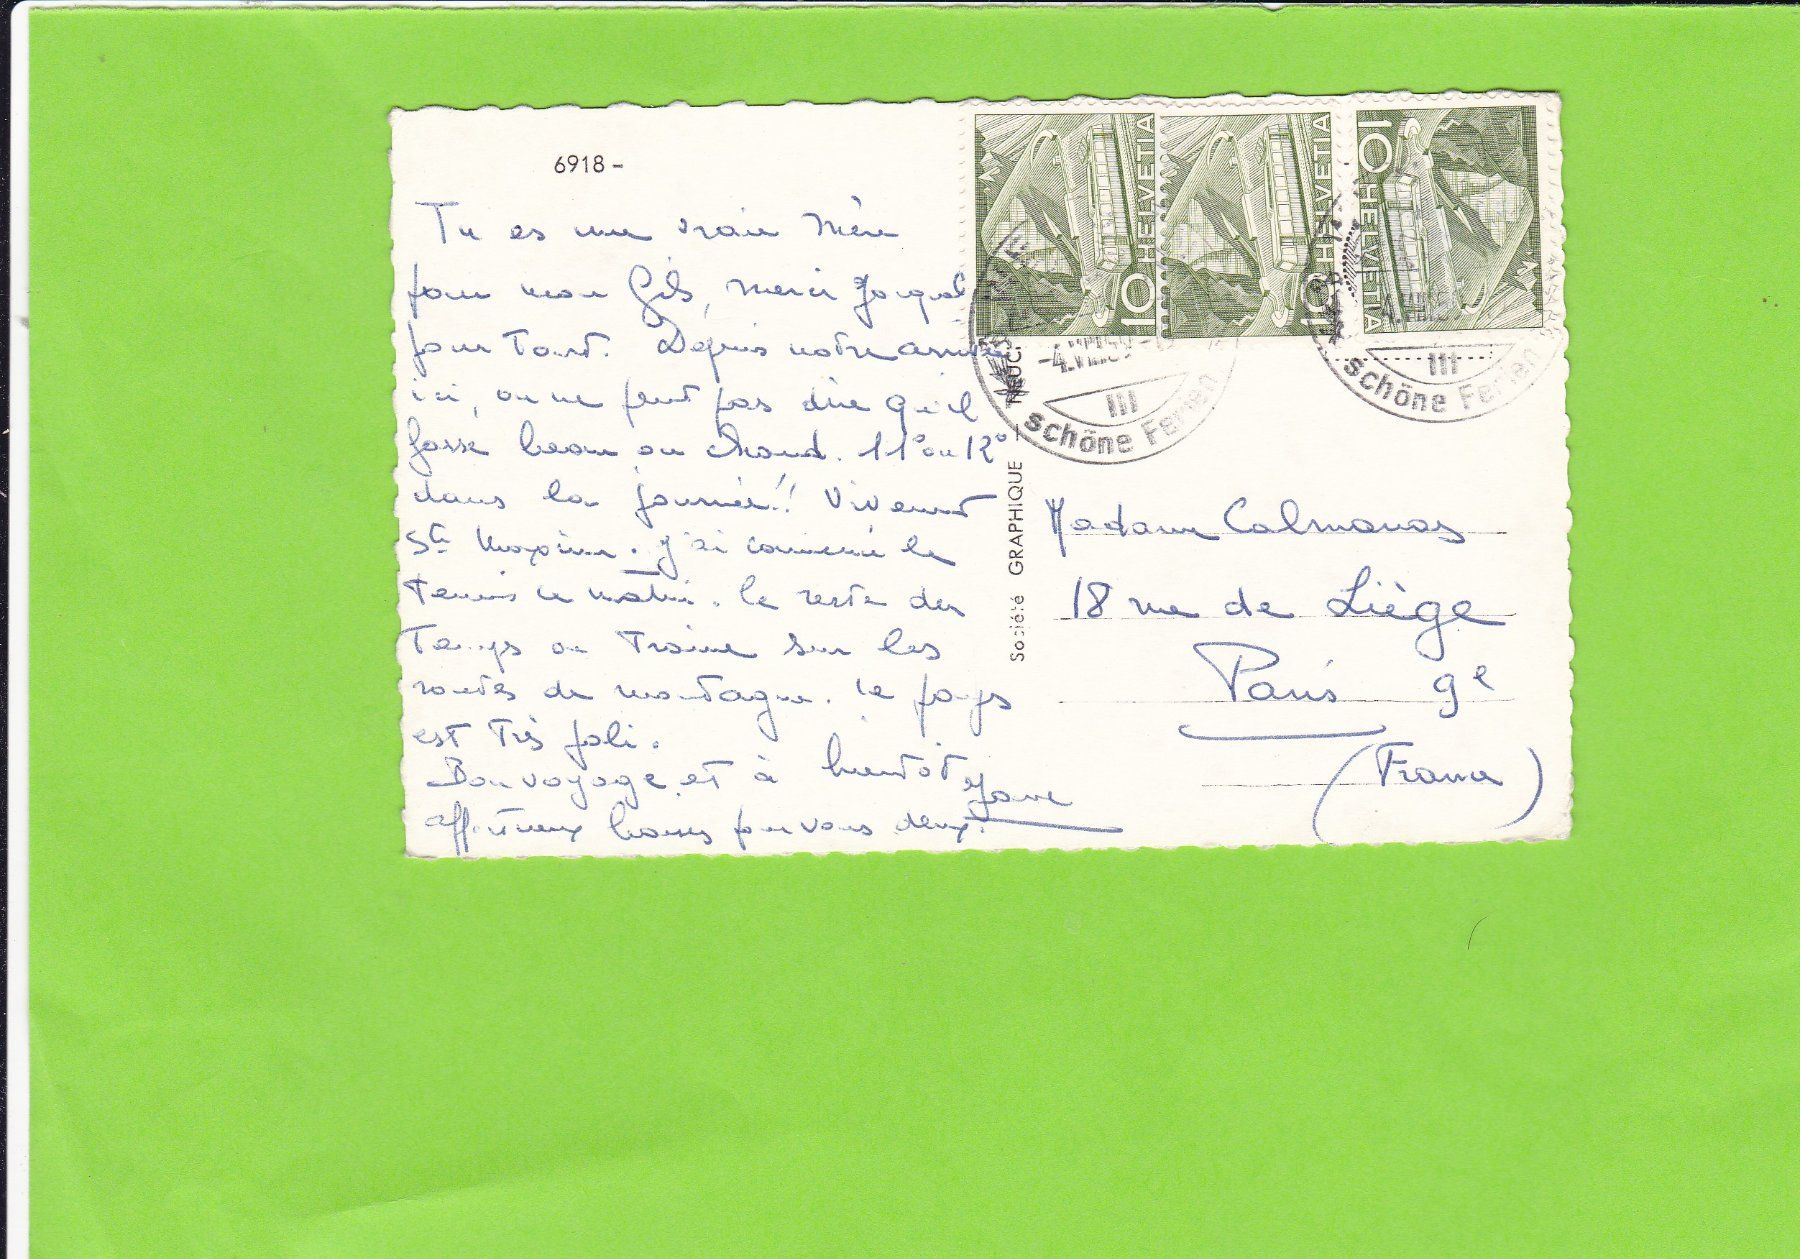 6918 -
Tu es une vraie Mère
pour mon Gils, merci
pour tout. Depuis notre arrivée
ici, on ne peut pas dire qu'il
fasse beau ou chaud. 11° ou 12°
dans la journée!! Vivement
Ste Maxime. J'ai commencé le
tennis ce matin. le reste du
Temps on traine sur les
routes de montagne. le pays
est très joli.
Bon voyage et à bientôt
affectueux baisers pour vous deux.
HELVETIA 10
HELVETIA 10
10 HELVETIA
III
schöne Ferien
III
schöne Ferien
Société GRAPHIQUE - NEUC
Madame Calmanas
18 rue de Liège
Paris 9e
(France)